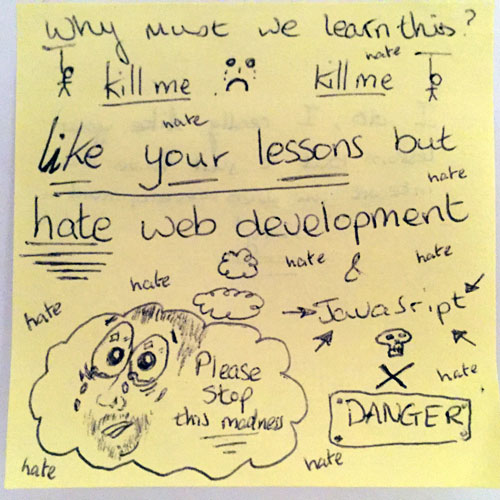 Why must we learn this?
hate
kill me
kill me
hate
like your lessons but
hate
hate web development
hate
hate
hate
&
hate
JavaScript
Please
stop
this madness
hate
DANGER
hate
hate